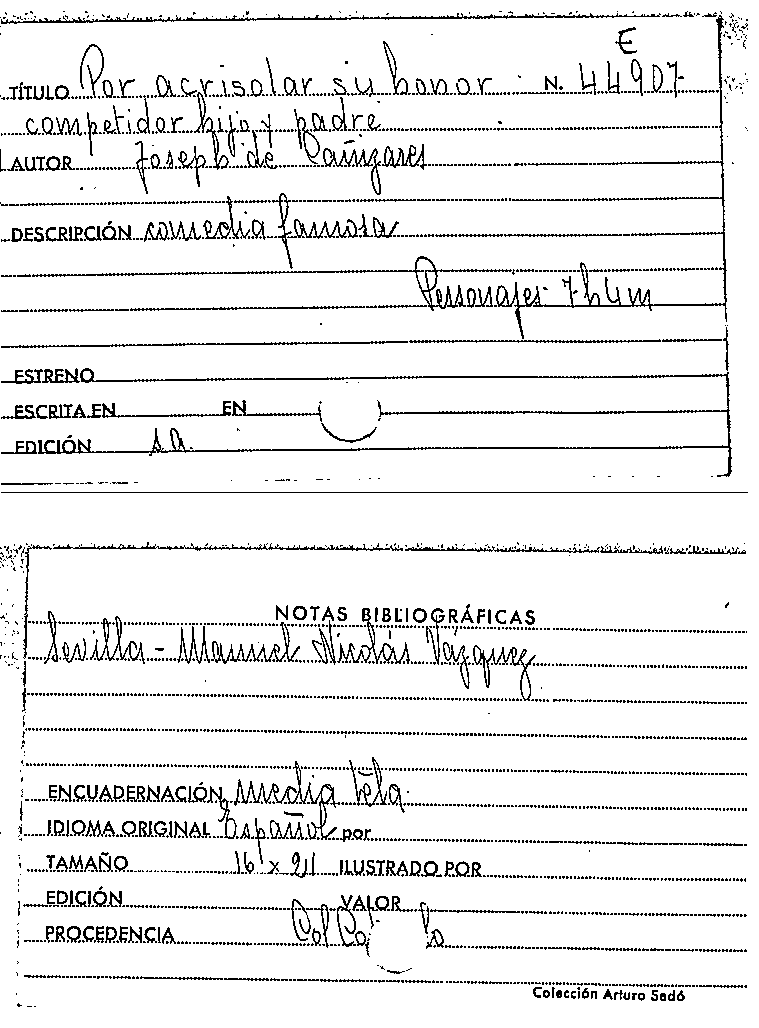 E
TÍTULO Por acrisolar su honor N. 44907
competidor hijo y padre
AUTOR Joseph de Cañizares
DESCRIPCIÓN comedia famosa
Personajes 7h 4m
ESTRENO
ESCRITA EN EN
EDICIÓN s.a.
NOTAS BIBLIOGRÁFICAS
Sevilla - Manuel Nicolás Vázquez
ENCUADERNACIÓN media tela
IDIOMA ORIGINAL Español por
TAMAÑO 16 x 21 ILUSTRADO POR
EDICIÓN VALOR
PROCEDENCIA Col
Colección Arturo Sedó